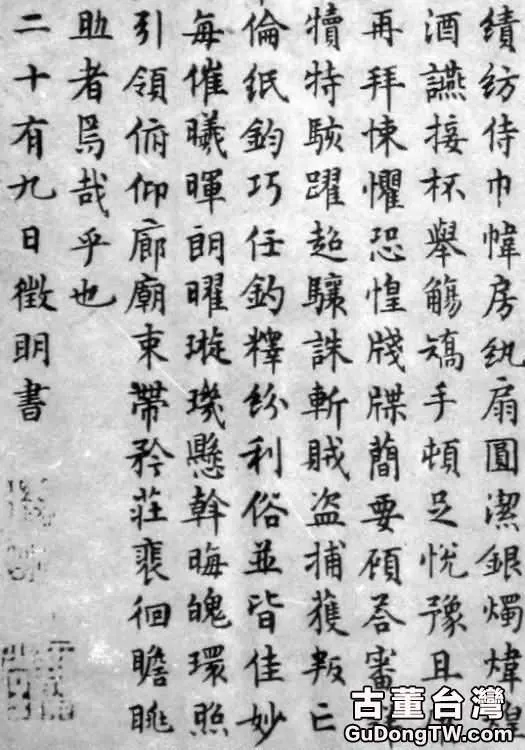 績紡侍巾幃房紈扇圓潔銀燭煒煌
酒讌接杯舉觴矯手頓足悅豫且康
再拜悚懼恐惶牋牒簡要顧荅審詳
犢特駭躍超驤誅斬賊盜捕獲叛亡
倫紙鈞巧任釣釋紛利俗並皆佳妙
每催曦暉朗曜璇璣懸斡晦魄環照
引領俯仰廊廟束帶矜莊裴徊瞻眺
助者焉哉乎也
二十有九日徵明書
古董台灣
GuDongTW.com